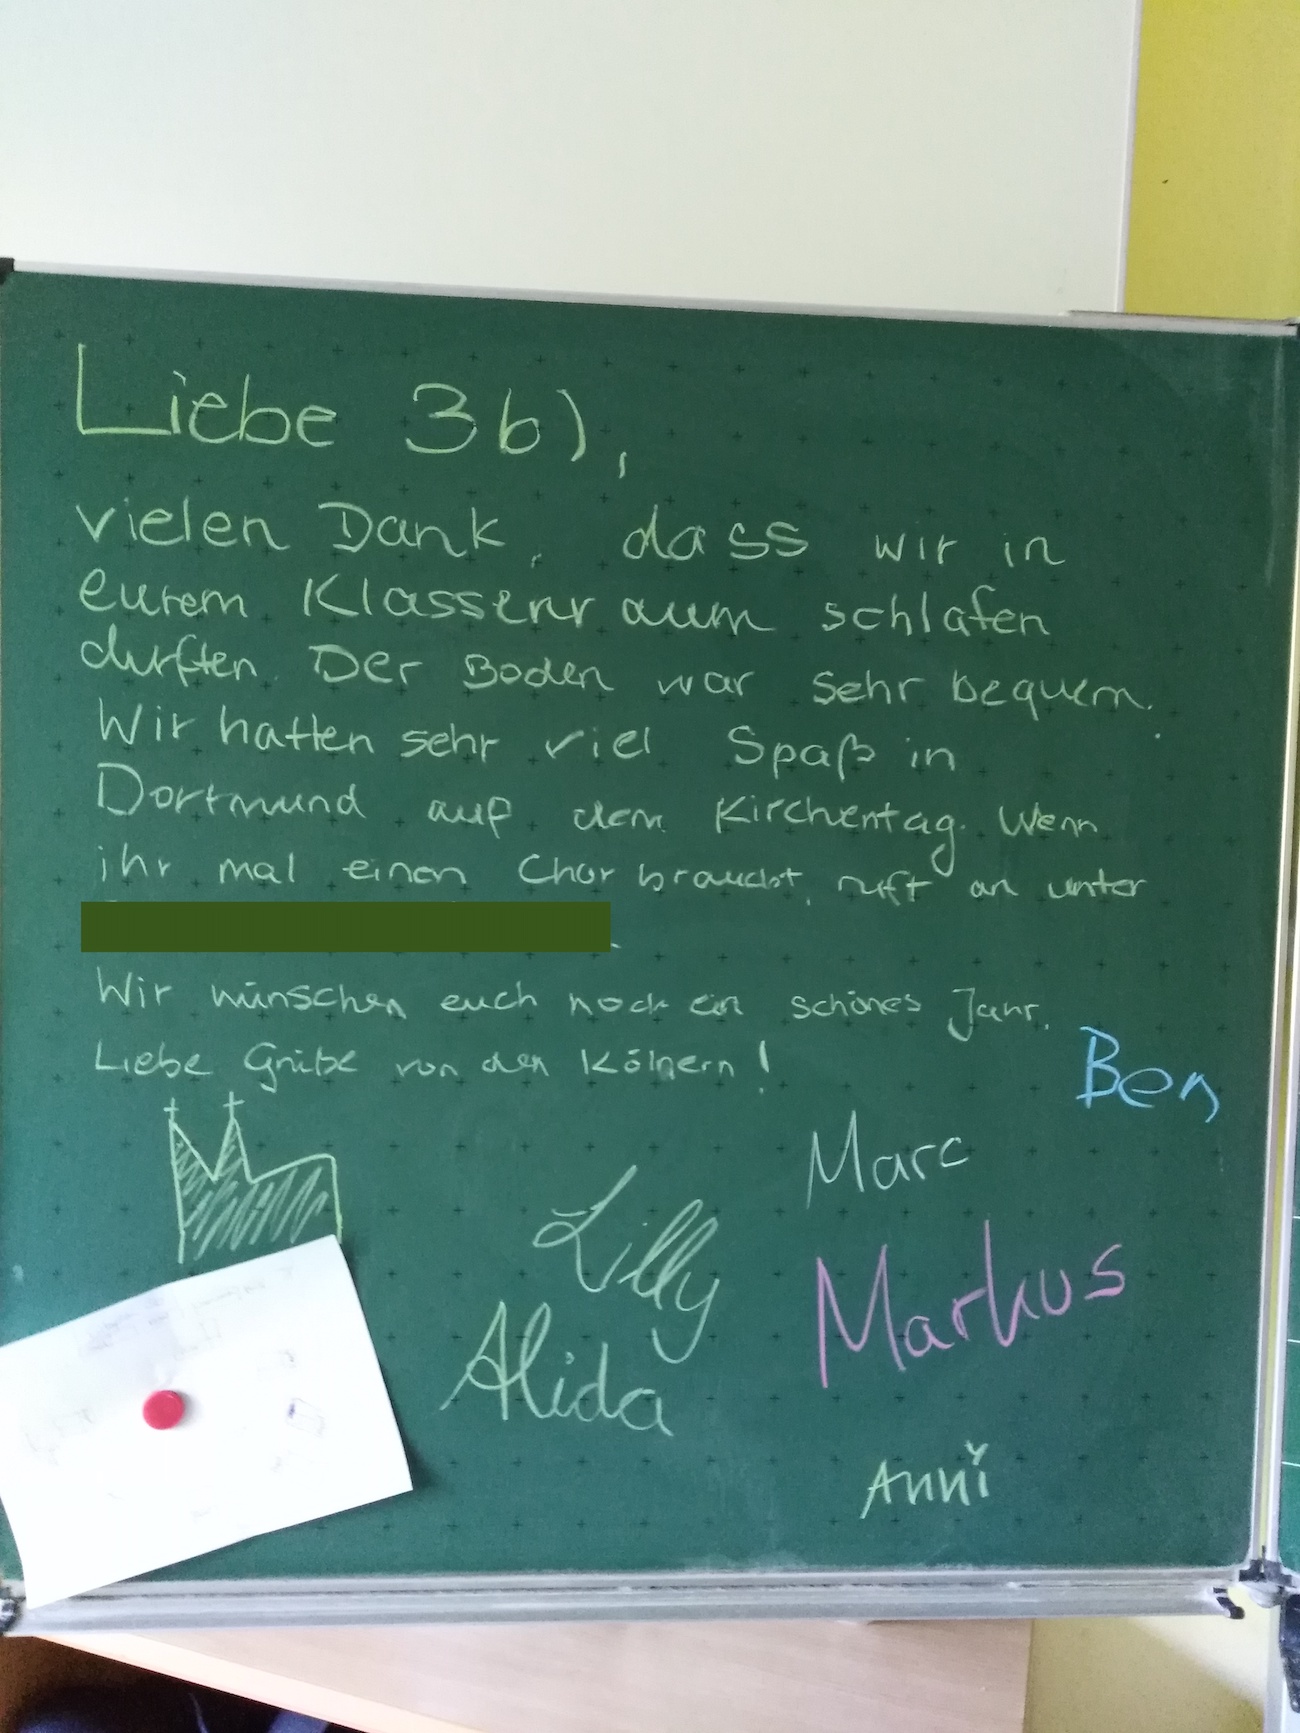 Liebe 3b),
vielen Dank, dass wir in
eurem Klassenraum schlafen
durften. Der Boden war sehr bequem.
Wir hatten sehr viel Spaß in
Dortmund auf dem Kirchentag. Wenn
ihr mal einen Chor braucht, ruft an unter
Wir wünschen euch noch ein schönes Jahr.
Liebe Grüße von den Kölnern!
Ben
Marc
Lilly
Markus
Alida
Anni